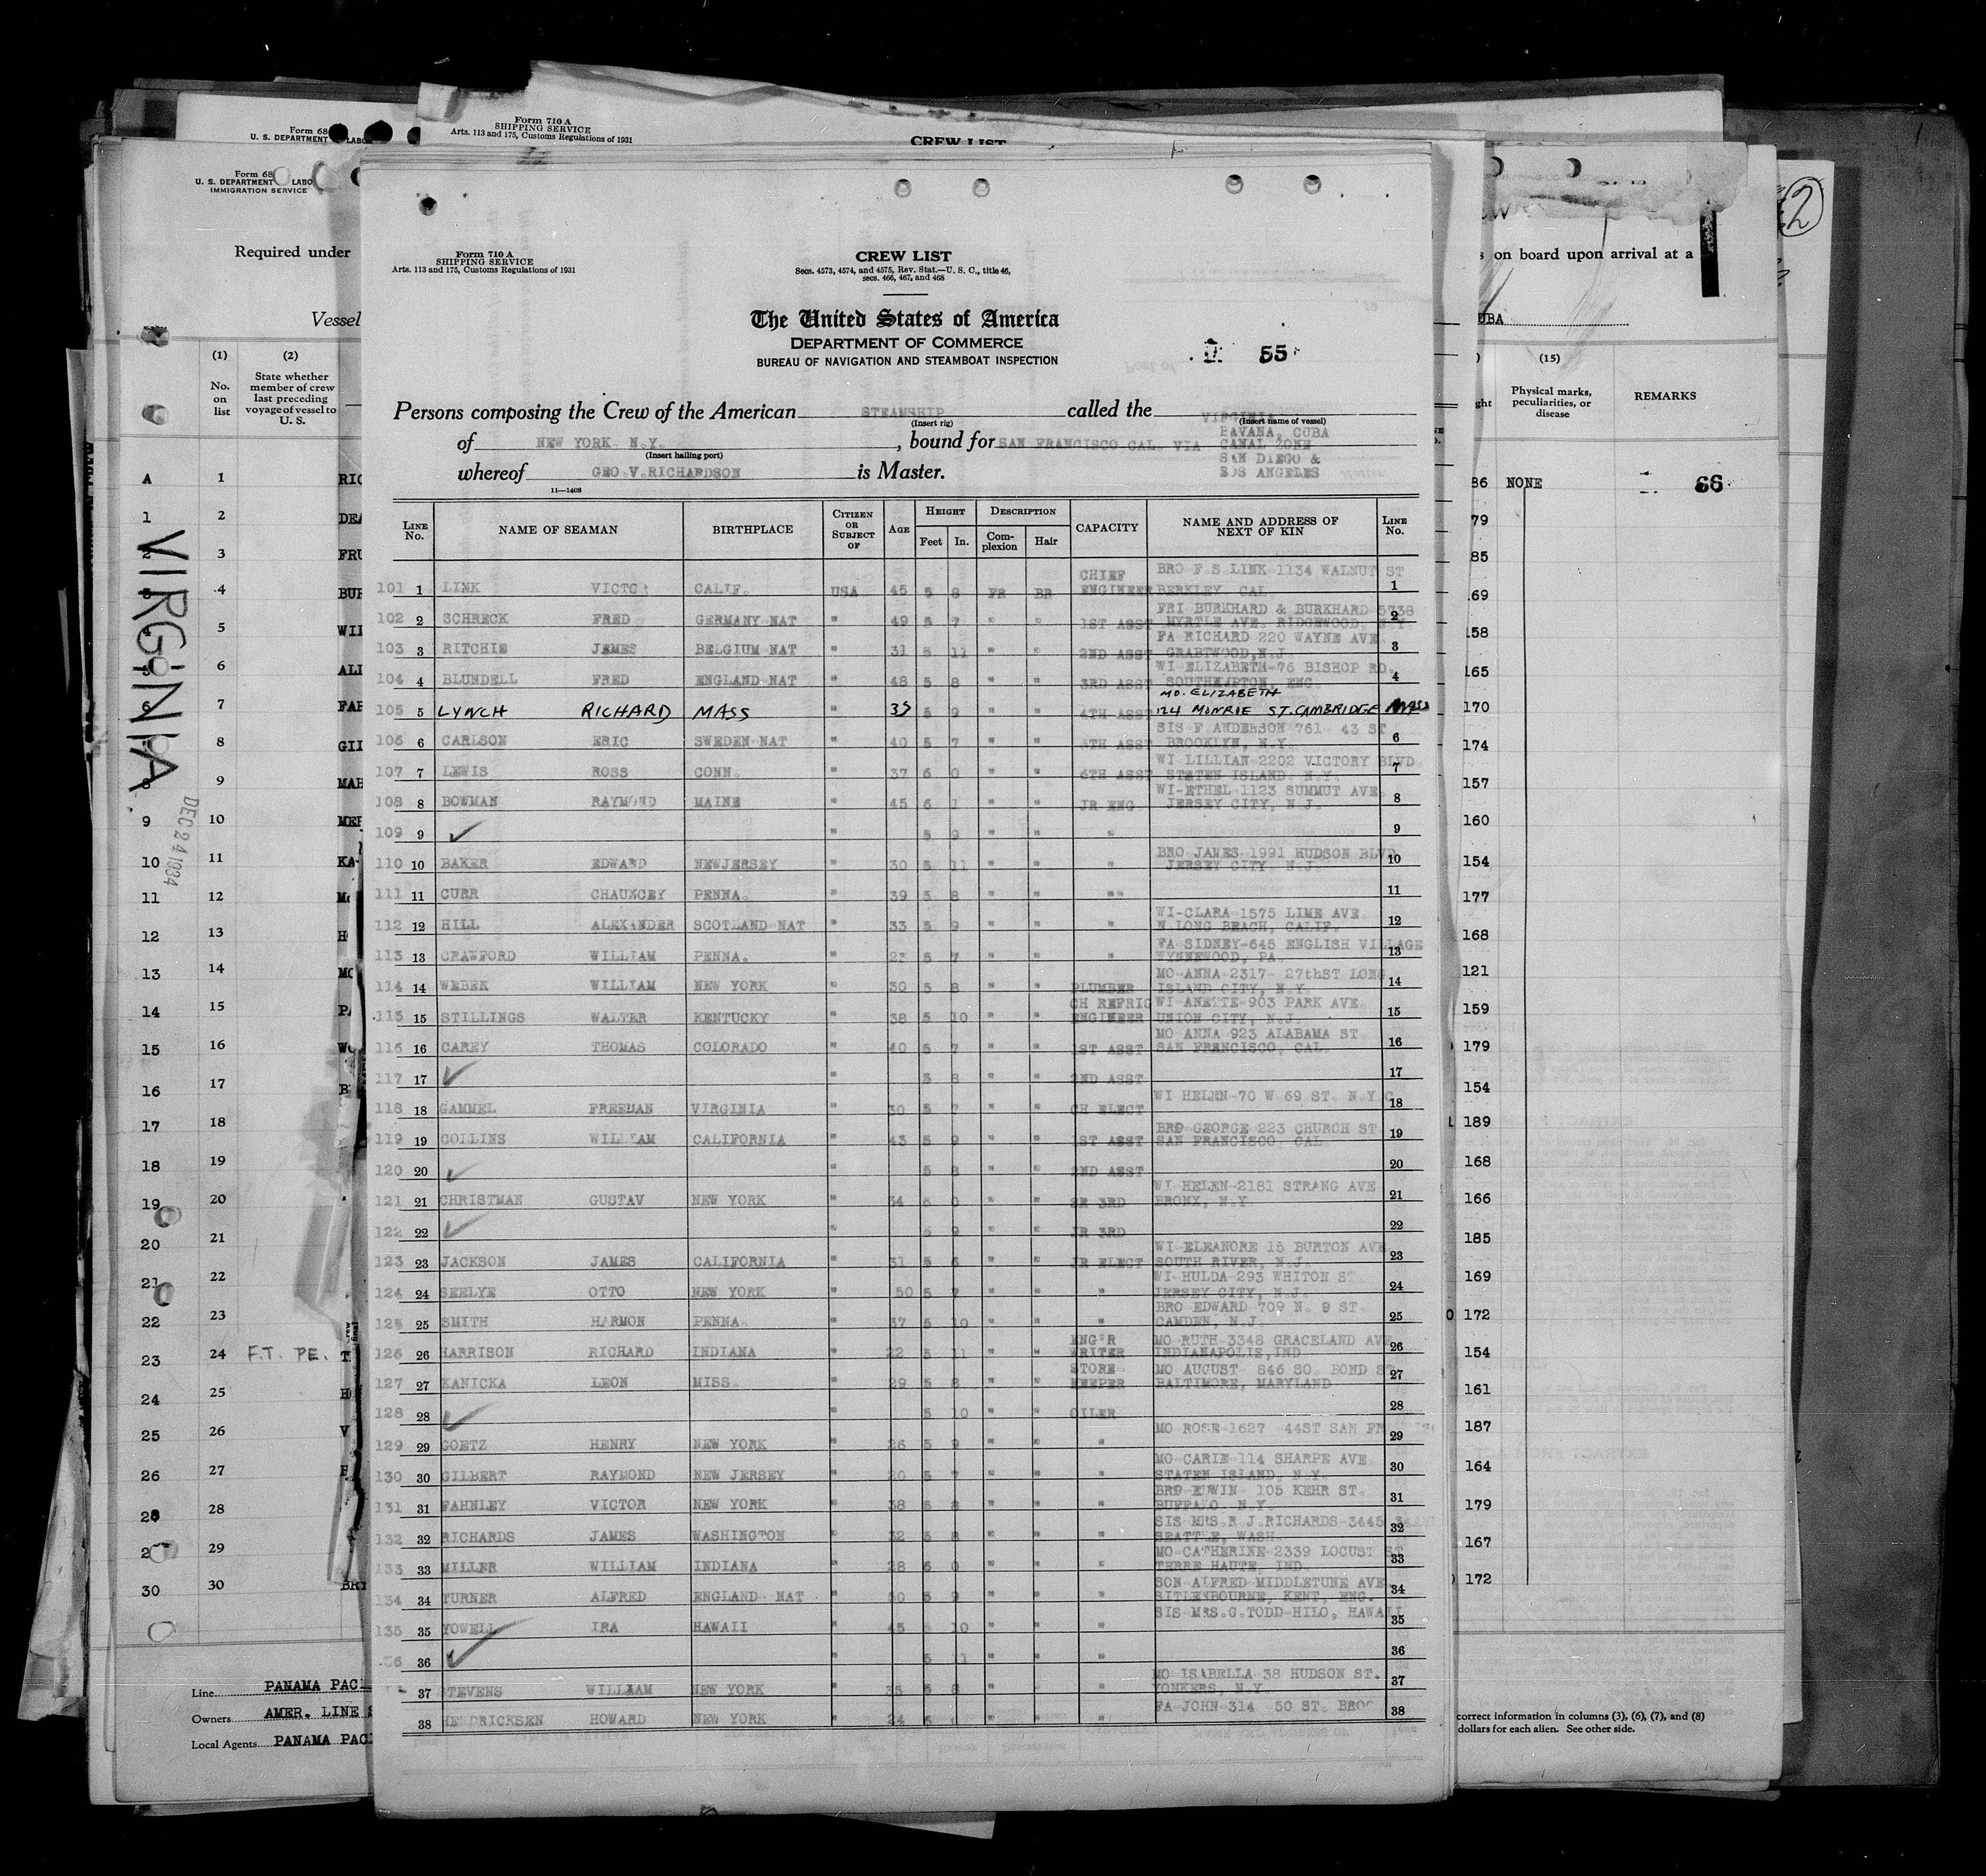 Form 710 A
SHIPPING SERVICE
Arts. 113 and 175, Customs Regulations of 1931
CREW LIST
Form 68
U. S. DEPARTMENT LABO
Form 68
U. S. DEPARTMENT LABO
IMMIGRATION SERVICE
Required under
Vessel
(1)
No. on list
(2)
State whether member of crew last preceding voyage of vessel to U. S.
VIRGINIA
DEC 24 1934
A 1 RIC
1 2 DEA
2 3 FRU
3 4 BUR
4 5 WIL
5 6 ALI
6 7 FAR
7 8 GIL
8 9 MAH
9 10 MER
10 11 KA
11 12 Mc
12 13 H
13 14 MO
14 15 PA
15 16 WO
16 17 B
17 18
18 19
19 20
20 21
21 22
22 23
23 24 F.T. PE. T
24 25 H
25 26 V
26 27 H
28 28
29
30 30 BR
Line PANAMA PACI
Owners AMER. LINE S
Local Agents PANAMA PAC
Form 710 A
SHIPPING SERVICE
Arts. 113 and 175, Customs Regulations of 1931
CREW LIST
Secs. 4573, 4574, and 4575, Rev. Stat.—U. S. C., title 46,
secs. 466, 467, and 468
The United States of America
DEPARTMENT OF COMMERCE
BUREAU OF NAVIGATION AND STEAMBOAT INSPECTION
55
Persons composing the Crew of the American STEAMSHIP called the VIRGINIA
(Insert rig) (Insert name of vessel)
of NEW YORK. N.Y. , bound for SAN FRANCISCO CAL. VIA HAVANA, CUBA
CANAL ZONE
SAN DIEGO &
LOS ANGELES
(Insert hailing port)
whereof GEO V. RICHARDSON is Master.
11—1408
LINE No. NAME OF SEAMAN BIRTHPLACE CITIZEN OR SUBJECT OF AGE HEIGHT Feet In. DESCRIPTION Complexion Hair CAPACITY NAME AND ADDRESS OF NEXT OF KIN LINE No.
101 1 LINK VICTO CALIF. USA 45 5 8 FR BR CHIEF ENGINEER BRO F S LINK 1134 WALNUT ST BERKLEY CAL. 1
102 2 SCHRECK FRED GERMANY NAT " 49 5 7 " " 1ST ASST FRI BURKHARD & BURKHARD 5738 MYRTLE AVE. RIDGEWOOD, N.Y. 2
103 3 RITCHIE JAMES BELGIUM NAT " 31 5 11 " " 2ND ASST FA RICHARD 220 WAYNE AVE. GRABTWOOD, N.J. 3
104 4 BLUNDELL FRED ENGLAND NAT " 48 5 8 " " 3RD ASST WI ELIZABETH-76 BISHOP RD. SOUTHAMPTON, ENG. 4
105 5 LYNCH RICHARD MASS " 35 5 9 " " 4TH ASST MO. ELIZABETH 124 MONRIE ST. CAMBRIDGE MASS
106 6 CARLSON ERIC SWEDEN NAT " 40 5 7 " " 5TH ASST SIS F ANDERSON 761- 43 ST BROOKLYN, N.Y. 6
107 7 LEWIS ROSS CONN. " 37 6 0 " " 6TH ASST WI LILLIAN 2202 VICTORY BLVD. STATEN ISLAND. N.Y. 7
108 8 BOWMAN RAYMOND MAINE " 45 6 1 " " JR ENG. WI-ETHEL 1123 SUMMUT AVE. JERSEY CITY, N.J. 8
109 9 ✓ " 5 9 " " " 9
110 10 BAKER EDWARD NEWJERSEY " 30 5 11 " " " BRO JAMES 1991 HUDSON BLVD JERSEY CITY, N.J. 10
111 11 CURR CHAUNCEY PENNA. " 39 5 8 " " " 11
112 12 HILL ALEXANDER SCOTLAND NAT " 33 5 9 " " " WI-CLARA 1575 LIME AVE. N.LONG BEACH, CALIF. 12
113 13 CRAWFORD WILLIAM PENNA. " 5 7 " " " FA SIDNEY-645 ENGLISH VILLAGE WYNNEWOOD, PA. 13
114 14 WEBER WILLIAM NEW YORK " 30 5 8 " " PLUMBER MO-ANNA 2317- 27thST LONG ISLAND CITY, N.Y. 14
115 15 STILLINGS WALTER KENTUCKY " 38 5 10 " " CH REFRIG ENGINEER WI-ANETTE-903 PARK AVE. UNION CITY, N.J. 15
116 16 CAREY THOMAS COLORADO " 40 5 7 " " 1ST ASST MO ANNA 923 ALABAMA ST. SAN FRANCISCO, CAL. 16
117 17 ✓ " 5 8 " " 2ND ASST 17
118 18 GAMMEL FREEMAN VIRGINIA " 30 5 7 " " CH ELECT WI HELEN-70 W 69 ST. N.Y.C 18
119 19 COLLINS WILLIAM CALIFORNIA " 43 5 9 " " 1ST ASST BRO GEORGE 223 CHURCH ST. SAN FRANCISCO, CAL 19
120 20 ✓ " 5 8 " " 2ND ASST 20
121 21 CHRISTMAN GUSTAV NEW YORK " 34 6 0 " " SR 3RD WI HELEN-2181 STRANG AVE BRONX, N.Y. 21
122 22 ✓ " 5 9 " " JR 3RD 22
123 23 JACKSON JAMES CALIFORNIA " 31 5 6 " " JR ELECT WI-ELEANORE 15 BURTON AVE SOUTH RIVER, N.J. 23
124 24 SEELYE OTTO NEW YORK " 50 5 7 " " " WI HULDA 293 WHITON ST JERSEY CITY, N.J. 24
125 25 SMITH HARMON PENNA. " 37 5 10 " " " BRO EDWARD 709 N. 9 ST. CAMDEN, N.J. 25
126 26 HARRISON RICHARD INDIANA " 22 5 11 " " ENG'R WRITER MO RUTH 3348 GRACELAND AVE INDIANAPOLIS, IND 26
127 27 KANICKA LEON MISS. " 29 5 8 " " STORE- KEEPER MO AUGUST 846 SO. BOND ST BALTIMORE, MARYLAND 27
128 28 ✓ " 5 10 " " OILER 28
129 29 GOETZ HENRY NEW YORK " 26 5 9 " " " MO ROSE-1627 44ST SAN FR 29
130 30 GILBERT RAYMOND NEW JERSEY " 20 5 7 " " " MO-CARIE 114 SHARPE AVE. STATEN ISLAND. N.Y. 30
131 31 FAHNLEY VICTOR NEW YORK " 38 5 8 " " " BRO EDWIN- 105 KEHR ST. BUFFALO. N.Y. 31
132 32 RICHARDS JAMES WASHINGTON " 32 5 8 " " " SIS MRS.R.J.RICHARDS-3445 SEATTLE, WASH 32
133 33 MILLER WILLIAM INDIANA " 28 6 0 " " " MO-CATHERINE-2339 LOCUST ST TERRE HAUTE, IND. 33
134 34 TURNER ALFRED ENGLAND NAT " 5 9 " " " SON ALFRED MIDDLETUNE AVE. SITLENBOURNE, KENT, ENG. 34
135 35 YOWELL IRA HAWAII " 45 10 " " " SIS MRS.G.TODD-HILO, HAWAII 35
36 36 ✓ " 5 11 " " " 36
37 STEVENS WILLIAM NEW YORK " 35 5 8 " " " MO ISABELLA 38 HUDSON ST. YONKERS, N.Y. 37
38 HENDRICKSEN HOWARD NEW YORK " 24 " " " FA-JOHN-314 50 ST. BROO 38
2
s on board upon arrival at a
UBA
ght
(15)
Physical marks, peculiarities, or disease
REMARKS
86 NONE 66
79
85
169
158
165
170
174
157
160
154
177
168
121
159
179
154
189
168
166
185
169
172
154
161
187
164
179
167
172
correct information in columns (3), (6), (7), and (8)
dollars for each alien. See other side.